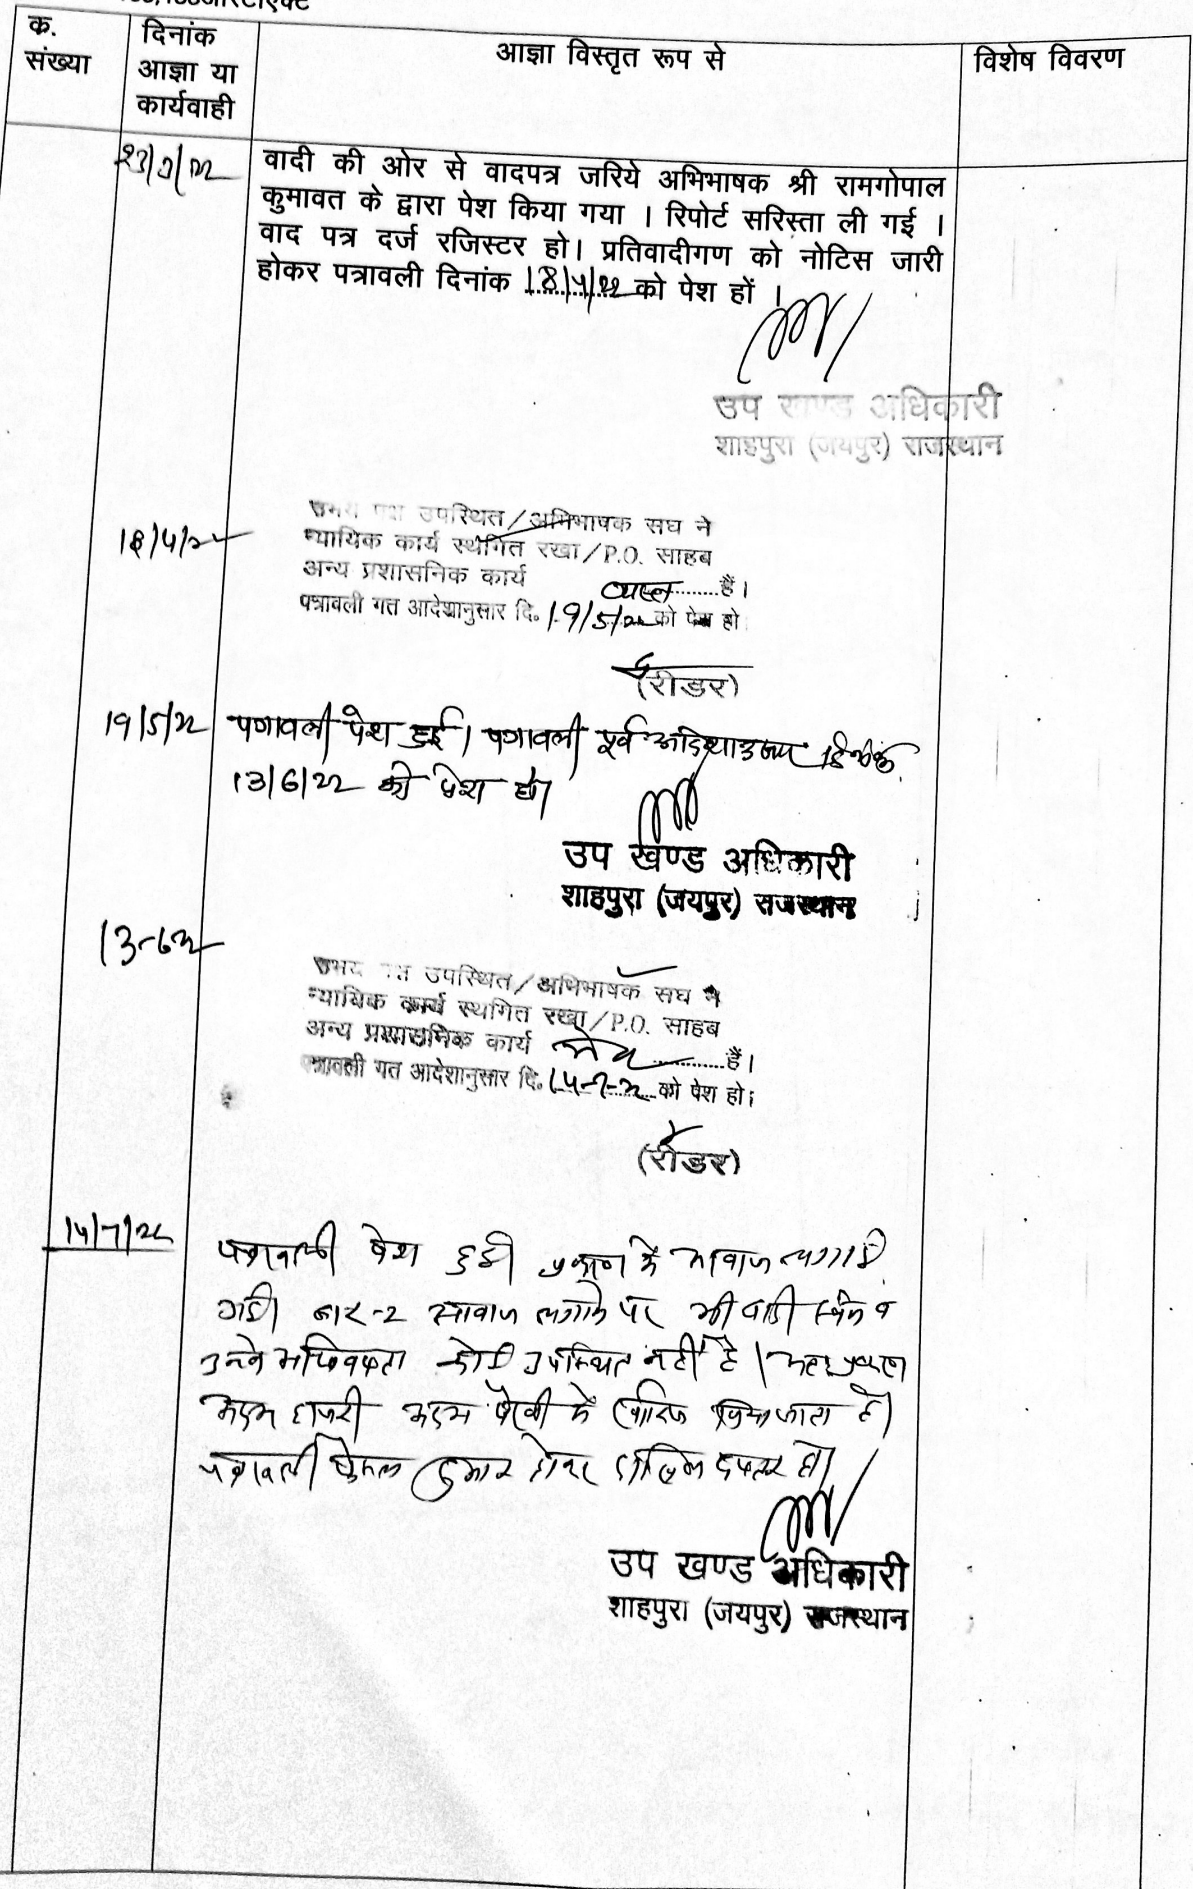 क. संख्या
दिनांक आज्ञा या कार्यवाही
आज्ञा विस्तृत रूप से
विशेष विवरण
वादी की ओर से वादपत्र जरिये अभिभाषक श्री रामगोपाल
कुमावत के द्वारा पेश किया गया । रिपोर्ट सरिस्ता ली गई ।
वाद पत्र दर्ज रजिस्टर हो। प्रतिवादीगण को नोटिस जारी
होकर पत्रावली दिनांक 18/4/22 को पेश हों ।
उप खण्ड अधिकारी
शाहपुरा (जयपुर) राजस्थान
18/4/22
उपस्थित/अभिभाषक संघ ने
न्यायिक कार्य स्थगित रखा/P.O. साहब
अन्य प्रशासनिक कार्य व्यस्त हैं।
पत्रावली गत आदेशानुसार दि. 19/5/22 को पेश हो
(रीडर)
19/5/22 पत्रावली पेश हुई। पत्रावली पूर्व आदेशानुसार दिनांक
13/6/22 को पेश हो।
उप खण्ड अधिकारी
शाहपुरा (जयपुर) राजस्थान
13-6-22
उभय पक्ष उपस्थित/अभिभाषक संघ ने
न्यायिक कार्य स्थगित रखा/P.O. साहब
अन्य प्रशासनिक कार्य हैं।
पत्रावली गत आदेशानुसार दि. 14-7-22 को पेश हो।
(रीडर)
14/7/22
पत्रावली पेश हुई। प्रकरण में आवाज लगाई
गई। बार-2 आवाज लगाने पर भी वादी स्वंय व
उनके अधिवक्ता कोई उपस्थित नहीं है। अतः प्रकरण
अदम हाजरी अदम पैरवी में खारिज किया जाता है।
पत्रावली फैसल शुमार होकर दाखिल दफ्तर हो।
उप खण्ड अधिकारी
शाहपुरा (जयपुर) राजस्थान